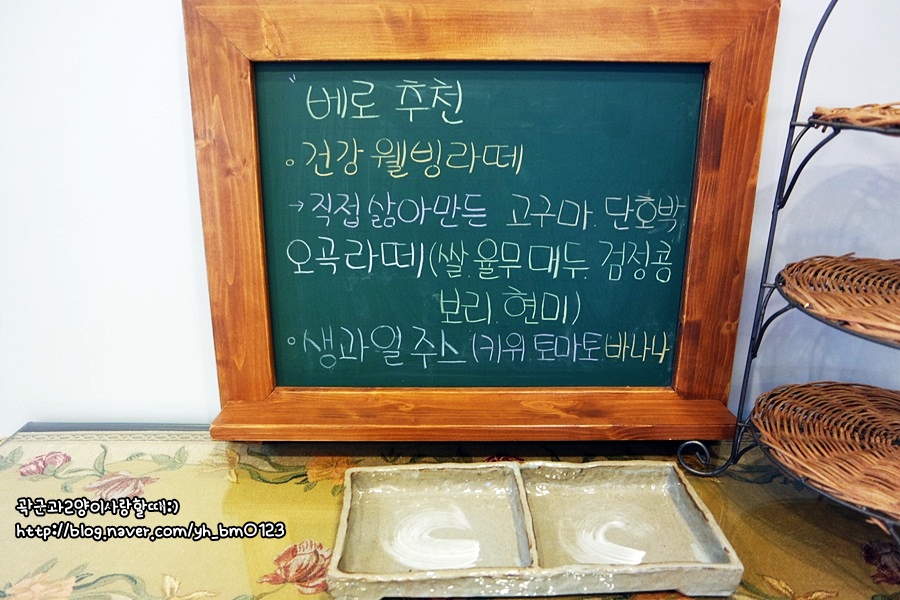 " 베로 추천
◦ 건강 웰빙라떼
→ 직접 삶아만든 고구마. 단호박
오곡라떼(쌀.율무 대두. 검정콩
보리. 현미)
◦ 생과일주스 (키위 토마토 바나나
곽군과2양이사랑할때:)
http://blog.naver.com/yh_bm0123